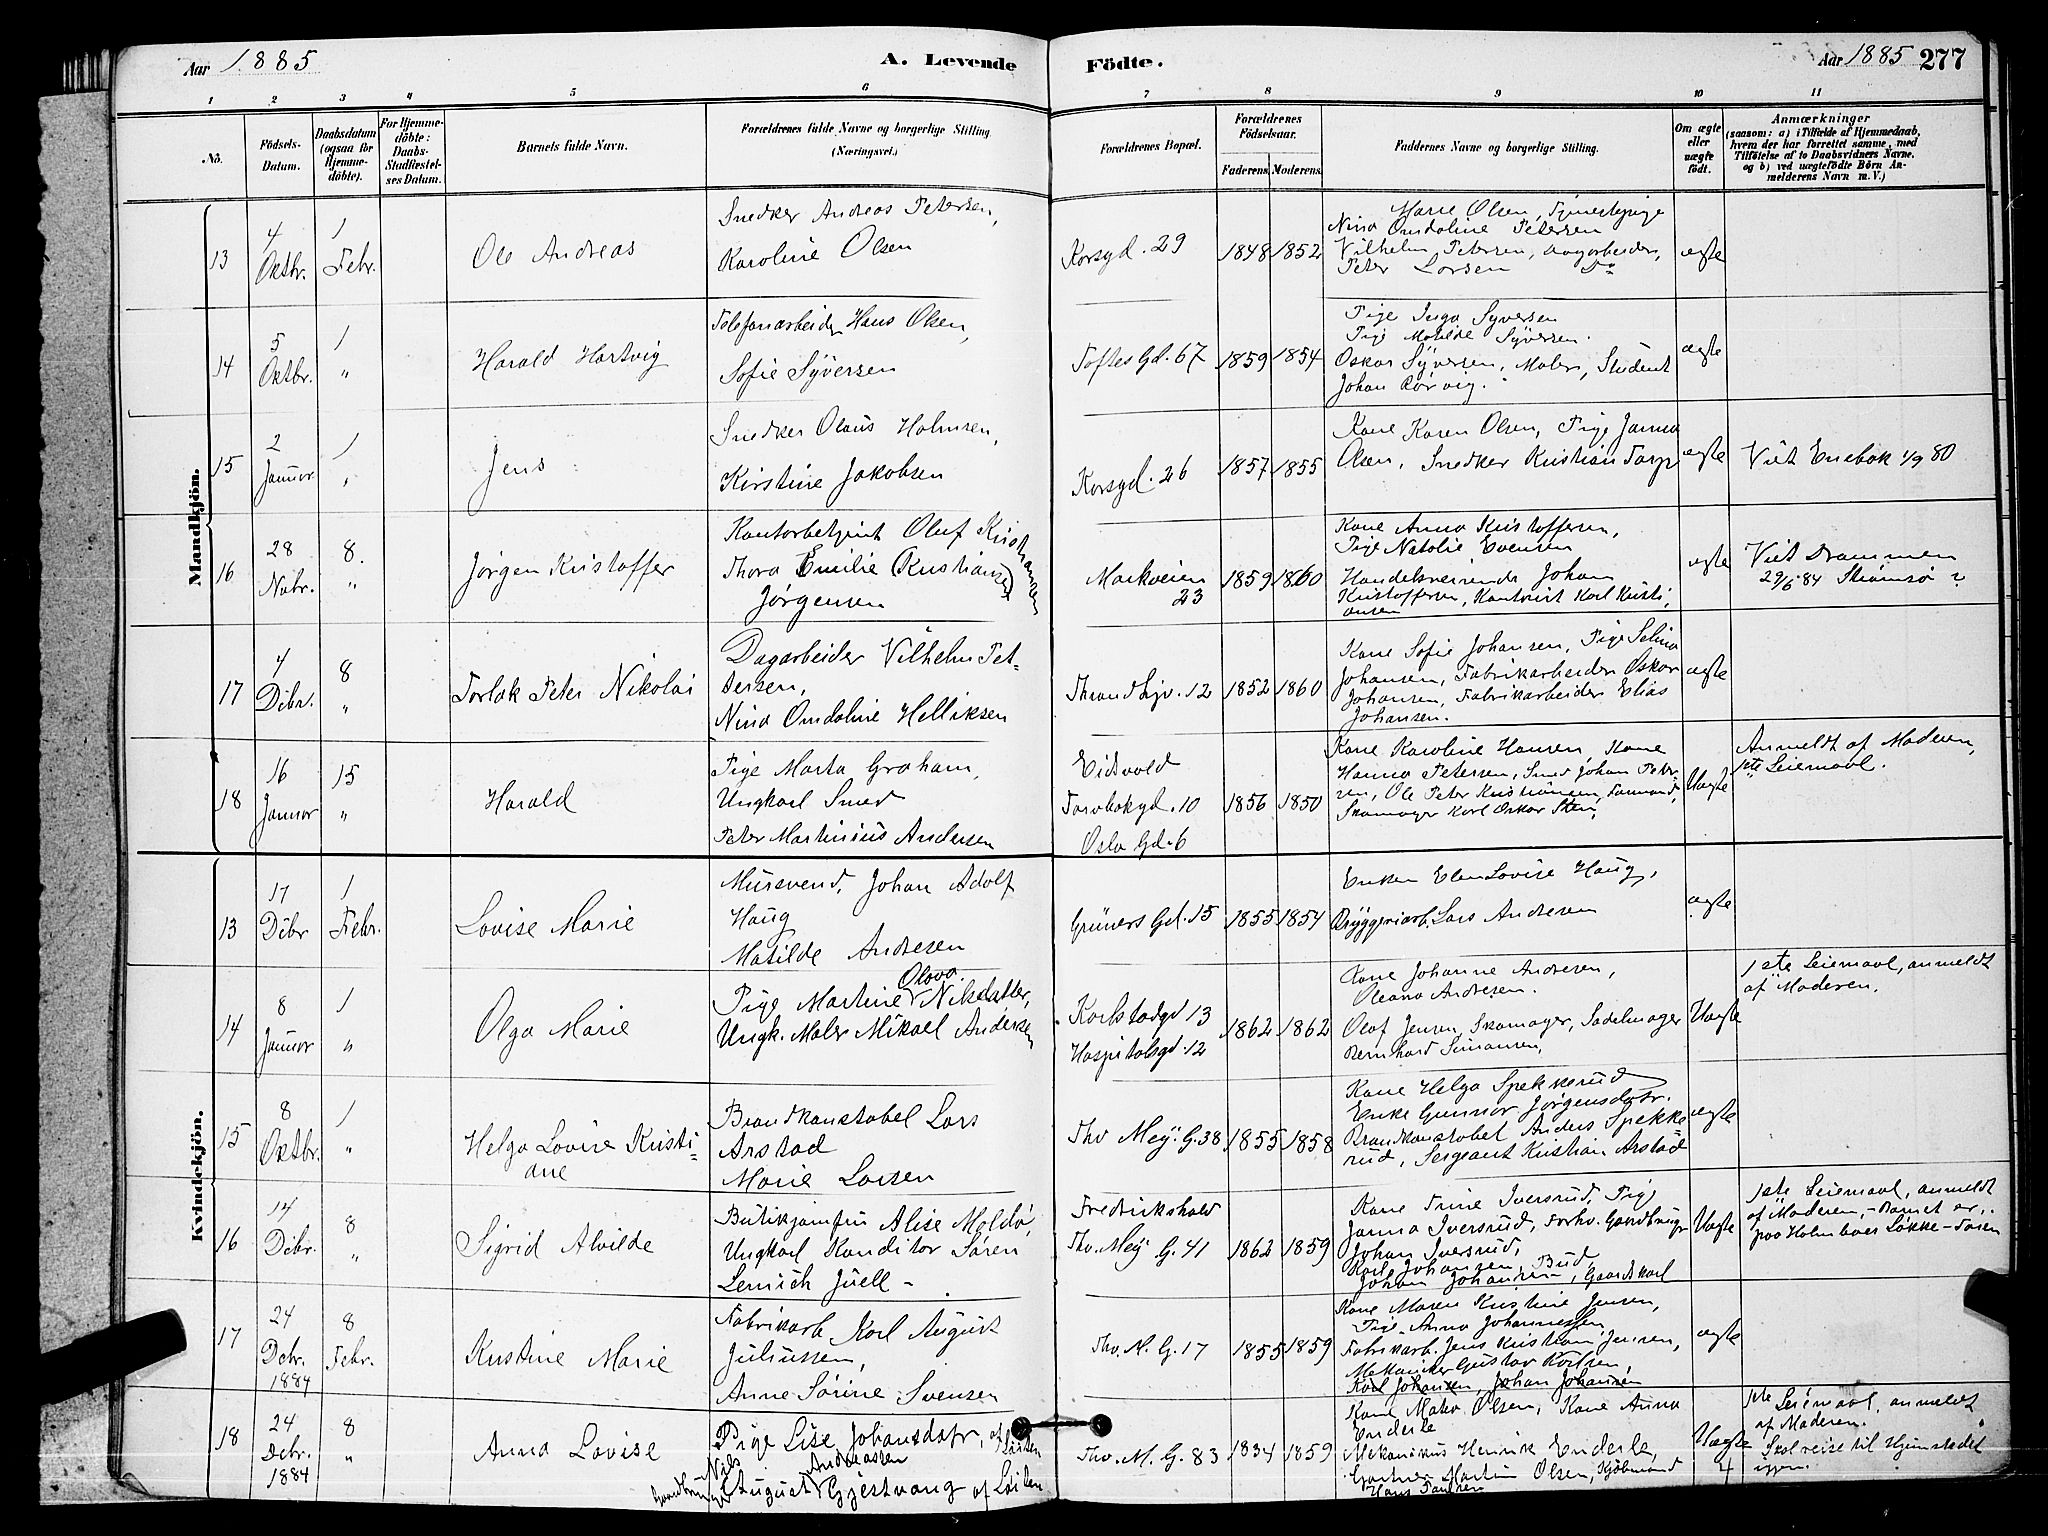 Aar 1885
A. Levende Födte.
Aar 1885 277
1 2 3 4 5 6 7 8 9 10 11
No.
Födsels-Datum.
Daabsdatum (ogsaa for Hjemmedöbte).
For Hjemmedöbte: Daabs-Stadfæstelses Datum.
Barnets fulde Navn.
Forældrenes fulde Navne og borgerlige Stilling. (Næringsvei.)
Forældrenes Bopæl.
Forældrenes Födselsaar.
Faderens. Moderens.
Faddernes Navne og borgerlige Stilling.
Om ægte eller uægte födt.
Anmærkninger
(saasom: a) i Tilfælde af Hjemmedaab, hvem der har forrettet samme, med Tilföielse af to Daabsvidners Navne, og b) ved uægtefödte Börn Anmelderens Navn m. V.)
Mandkjön.
13
4 Oktbr.
1 Febr.
Ole Andreas
Snedker Andreas Petersen,
Karoline Olsen
Korsgd. 29
1848 1852
Marie Olsen, Tjenestepige
Nina Omdoline Petersen
Vilhelm Petersen, Dagarbeider,
Peter Larsen Do
ægte
14
5 Oktbr.
1 "
Harald Hartvig
Telefonarbeider Hans Olsen,
Sofie Syversen
Toftes Gd. 67
1859 1854
Pige Inga Syversen
Pige Matilde Syversen.
Oskar Syversen, Maler, Student
Johan Rörvig.
ægte
15
2 Januar
1 "
Jens
Snedker Olaus Holmsen,
Kirstine Jakobsen
Korsgd. 26
1857 1855
Kone Karen Olsen, Pige Janna
Olsen, Snedker Kristian Torp
ægte
Viet Enebak 1/9 80
16
28 Nvbr.
8. "
Jörgen Kristoffer
Kontorbetjent Oluf Kristiansen
Thora Emilie (Kristiansen)
Jörgensen
Markveien 23
1859 1860
Kone Anna Kristoffersen,
Pige Natalie Evensen
Handelsreisende Johan
Kristoffersen, Kontorist Karl Kristi,
ansen
ægte
Viet Drammen
29/6 84 Strömsö
17
4 Dcbr.
8 "
Torlak Peter Nikolai
Dagarbeider Vilhelm Pet-
tersen,
Nina Omdoline Helliksen
Throndhjv. 12
1852 1860
Kone Sofie Johansen, Pige Selma
Johansen, Fabrikarbeider Oskar
Johansen, Fabrikarbeider Elias
Johansen.
ægte
18
16 Januar
15 "
Harald
Pige Marta Graham,
Ungkarl Smed
Peter Martinius Andersen
Eidsvold
Torvbakgd. 10
Oslo Gd. 6
1856 1850
Kone Karoline Hansen, Kone
Hanna Petersen, Smed Johan Peter-
sen, Ole Peter Kristiansen,
Skomager Karl Oskar Sten,
Uægte
Anmeldt af Moderen,
1ste Leiermaal.
Kvindekjön.
13
17 Dcbr
1 Febr.
Lovise Marie
Mursvend, Johan Adolf
Haug
Matilde Andresen
Grüners Gd. 15
1855 1854
Enken Elen Lovise Haug,
Bryggeriarb. Lars Andresen
ægte
14
8 Januar
1 "
Olga Marie
Pige Martine Olava Nilsdatter,
Ungk. Maler Mikael Andersen
Karlstadgd 13
Hospitalsgd. 12
1862 1862
Kone Johanne Andresen,
Oleana Andresen.
Olaf Jensen, Skomager, Sadelmager
Bernhard Simonsen,
Uægte
1ste Leiermaal, anmeldt
af Moderen.
15
8 Oktbr.
1 "
Helga Lovise Kristi=
ane
Brandkonstabel Lars
Arstad
Marie Larsen
Thv Mey. G. 38
1855 1858
Kone Helga Spekkerud
Enke Gunnor Jörgensdatr.
Brandkonstabel Anders Spekke=
rud, Sergeant Kristian Arstad
ægte
16
14 Dcbr.
8 "
Sigrid Alvilde
Butikjomfru Alise Moldö,
Ungkarl Konditor Sören
Lemich Juell -
Fredrikshald
Thv. Mey G. 41
1862 1859
Kone Trine Iversrud, Pige
Janna Iversrud, Forhv. Gaardbruger
Johan Iversrud,
Karl Johansen, Bud,
Johan Johansen, Gaardskarl
Uægte
1ste Leiermaal, anmeldt
af Moderen, - Barnet er
paa Holmboes Løkke - Tøien
17
24 Dcbr. 1884
8 Febr.
Kristine Marie
Fabrikarb Karl August
Juliussen,
Anne Sörine Svensen
Thv. M. G. 17
1855 1859
Kone Maren Kristine Jensen,
Pige Anna Johannessen
Fabrikarb. Jens Kristian Jensen,
Mekaniker Gustav Karlsen,
Karl Johansen, Johan Johansen
ægte
18
24 Dcbr. 1884
8 "
Anna Lovise
Pige Lise Johansdatr, af Löiten
Gaardbruger Nils August Andreassen Gjestvang af Löiten
Thv. M. G. 83
1834 1859
Kone Olsen, Kone Anna
Enderle
Mekanikus Henrik Enderle,
Gartner Martin Olsen, Kjöbmand
Hans Paulsen
Uægte
1ste Leiermaal, anmeldt
af Moderen.
Skal reise til Hjemstedet
igjen.